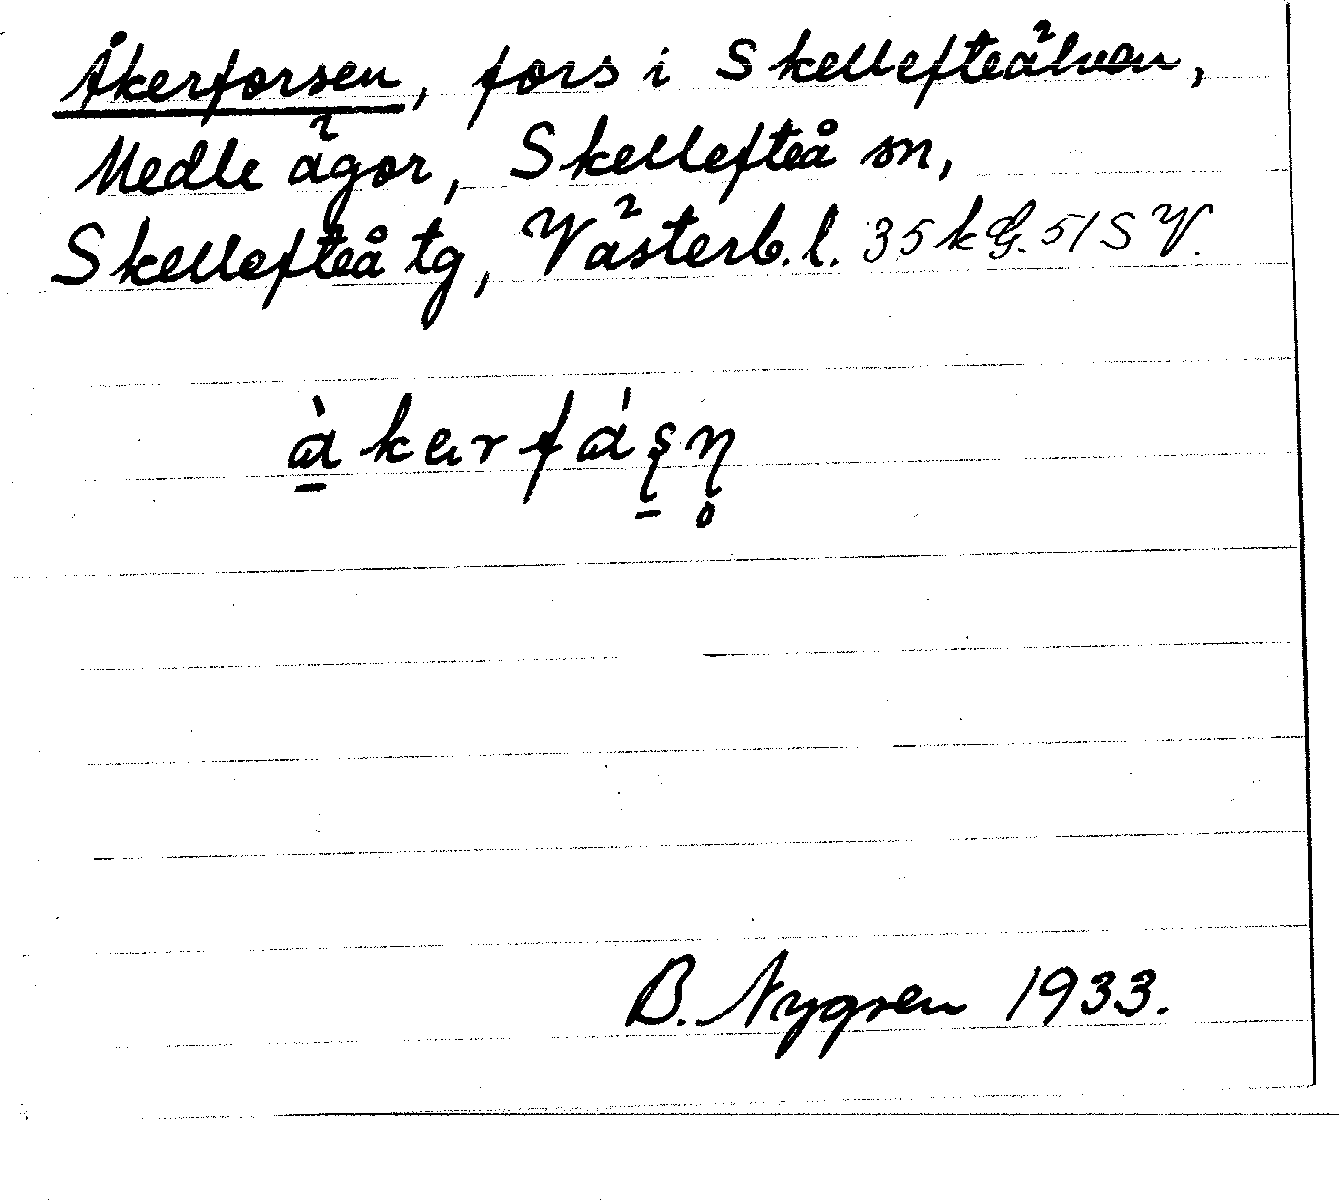 Åkerforsen, fors i Skellefteälven,
Medle ägor, Skellefteå sn,
Skellefteå tg, Västerb. l. 35 k G. 51 S V.
B. Nygren 1933.